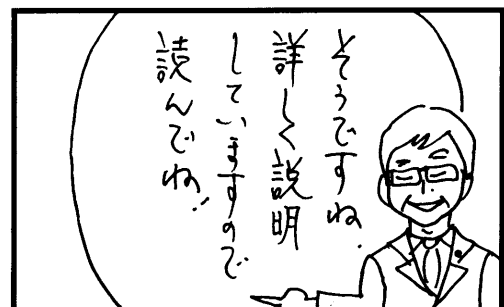 そうですね。
詳しく説明
していますので
読んでね!!